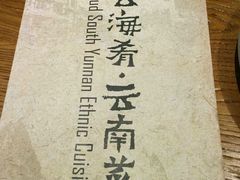 海肴·云南菜
South Yunnan Ethnic Cuisi